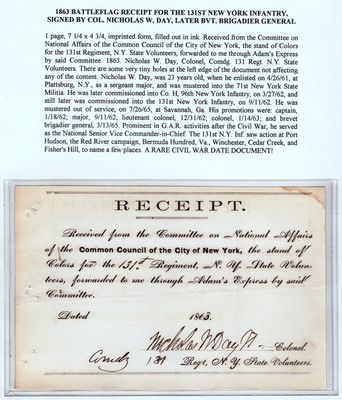 1863 BATTLEFLAG RECEIPT FOR THE 131ST NEW YORK INFANTRY,
SIGNED BY COL. NICHOLAS W. DAY, LATER BVT. BRIGADIER GENERAL
1 page, 7 1/4 x 4 3/4, imprinted form, filled out in ink. Received from the Committee on
National Affairs of the Common Council of the City of New York, the stand of Colors
for the 131st Regiment, N.Y. State Volunteers, forwarded to me through Adam's Express
by said Committee. 1863. Nicholas W. Day, Colonel, Comdg. 131 Regt. N.Y. State
Volunteers. There are some very tiny holes at the left edge of the document not affecting
any of the content. Nicholas W. Day, was 23 years old, when he enlisted on 4/26/61, at
Plattsburg, N.Y., as a sergeant major, and was mustered into the 71st New York State
Militia. He was later commissioned into Co. H, 96th New York Infantry, on 3/27/62, and
still later was commissioned into the 131st New York Infantry, on 9/11/62. He was
mustered out of service, on 7/26/65, at Savannah, Ga. His promotions were: captain,
1/18/62; major, 9/11/62; lieutenant colonel, 12/31/62; colonel, 1/14/63; and brevet
brigadier general, 3/13/65. Prominent in G.A.R. activities after the Civil War, he served as
the National Senior Vice Commander-in-Chief. The 131st N.Y. Inf. saw action at Port
Hudson, the Red River campaign, Bermuda Hundred, Va., Winchester, Cedar Creek, and
Fisher's Hill, to name a few places. A RARE CIVIL WAR DATE DOCUMENT!
RECEIPT.
Received from the Committee on National Affairs
of the Common Council of the City of New York, the stand of
Colors for the 131st Regiment, N. Y. State Volun-
teers, forwarded to me through Adam's Express by said
Committee.
Dated 1863.
Nicholas W Day Colonel
Comdg 131 Regt, N. Y. State Volunteers.